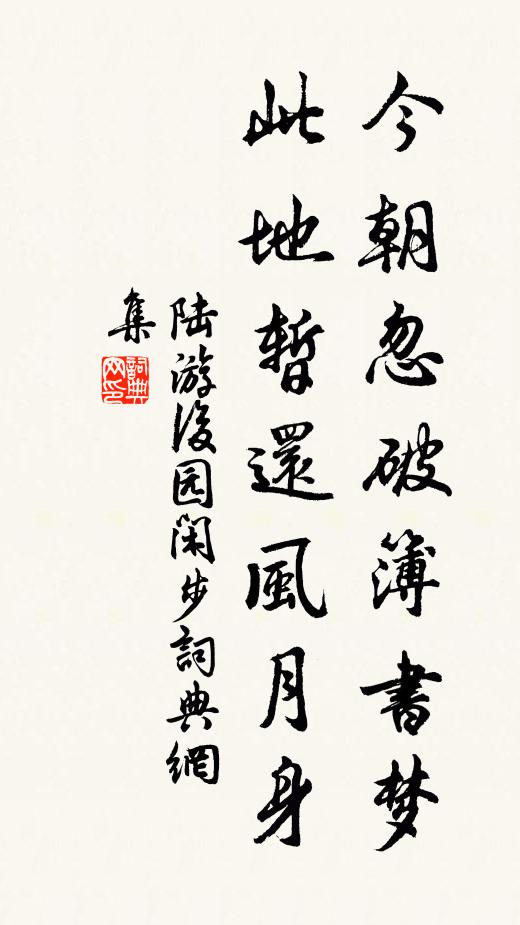 今朝忽破簿書梦
此地暫還風月身
陆游後园闲步詞典網
集
詞典网印